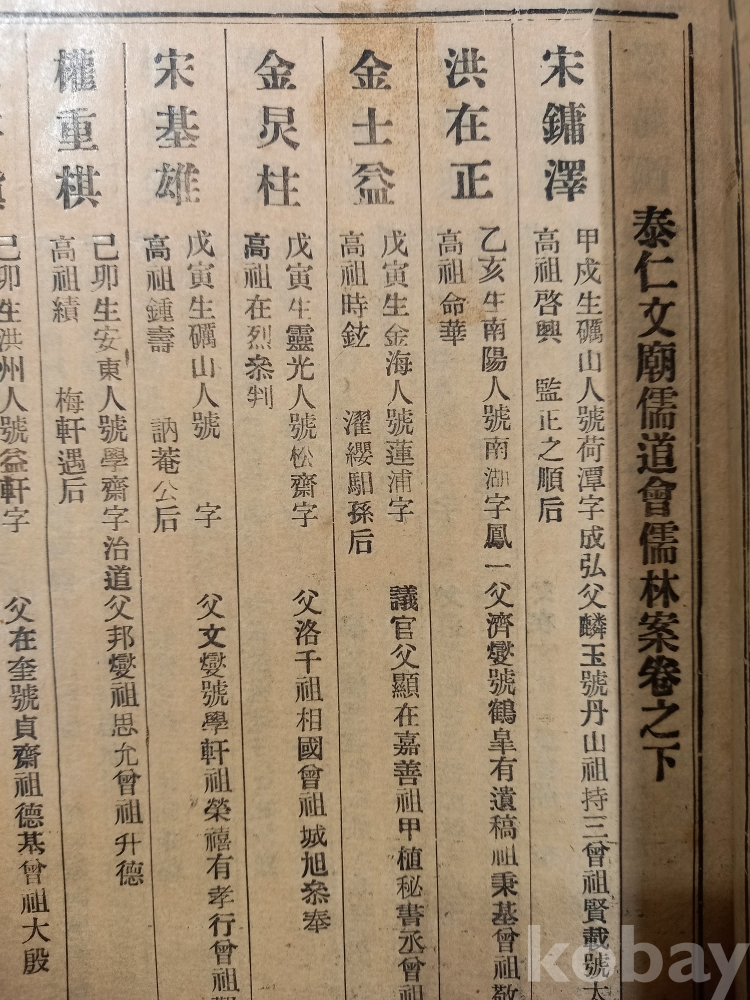 泰仁文廟儒道會儒林案卷之下
宋鏞澤
甲戍生礪山人號荷潭字成弘父麟玉號丹山祖持三曾祖賢載號大
高祖啓興 監正之順后
洪在正
乙亥生南陽人號南湖字鳳一父濟燮號鶴皐有遺稿祖秉基曾祖敬
高祖命華
金士益
戊寅生金海人號蓮浦字 議官父顯在嘉善祖甲植秘書丞曾祖
高祖時鉉 濯纓馹孫后
金炅柱
戊寅生靈光人號松齋字 父洛千祖相國曾祖城旭叅奉
高祖在烈叅判
宋基雄
戊寅生礪山人號 字 父文燮號學軒祖榮禧有孝行曾祖
高祖鍾壽 訥菴公后
權重棋
己卯生安東人號學齋字治道父邦燮祖思允曾祖升德
高祖績 梅軒遇后
己卯生洪州人號益軒字 父在奎號貞齋祖德基曾祖大殷
kobay